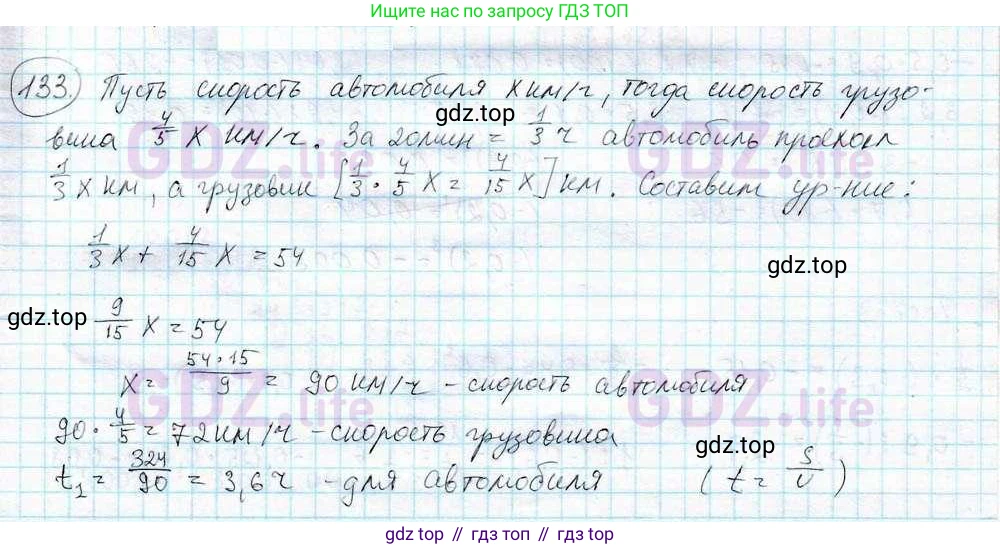 Ищите по запросу ГДЗ ТОП
133. Пусть скорость автомобиля x км/ч, тогда скорость грузо-
gdz.top
вика 4/5 x км/ч. За 20 мин = 1/3 ч автомобиль проехал
GDZ.life GDZ.life
1/3 x км, а грузовик [1/3 · 4/5 x = 4/15 x] км. Составим ур-ние:
1/3 x + 4/15 x = 54
gdz.top
gdz.top
9/15 x = 54
x = 54·15/9 = 90 км/ч - скорость автомобиля
GDZ.life GDZ.life
90 · 4/5 = 72 км/ч - скорость грузовика
gdz.top
t1 = 324/90 = 3,6 ч - для автомобиля (t = S/v)
gdz.top // гдз топ // gdz top